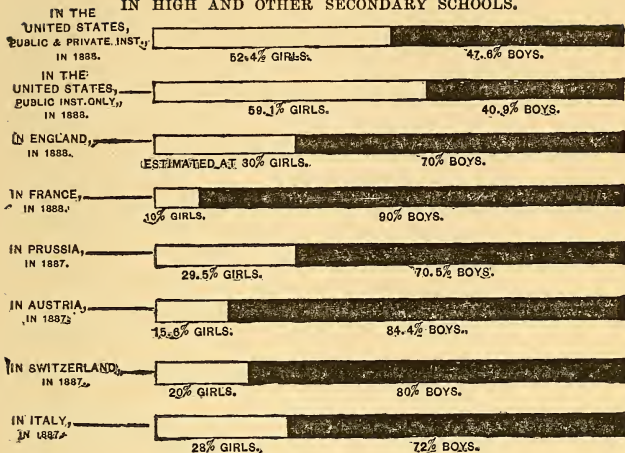 IN HIGH AND OTHER SECONDARY SCHOOLS.
IN THE
UNITED STATES,
PUBLIC & PRIVATE INST.,
IN 1888.
52.4% GIRLS. 47.6% BOYS.
IN THE
UNITED STATES,
PUBLIC INST. ONLY,
IN 1888.
59.1% GIRLS. 40.9% BOYS.
IN ENGLAND,
IN 1888.
ESTIMATED AT 30% GIRLS. 70% BOYS.
IN FRANCE,
IN 1888.
10% GIRLS. 90% BOYS.
IN PRUSSIA,
IN 1887.
29.5% GIRLS. 70.5% BOYS.
IN AUSTRIA,
IN 1887.
15.6% GIRLS. 84.4% BOYS.
IN SWITZERLAND,
IN 1887.
20% GIRLS. 80% BOYS.
IN ITALY,
IN 1887.
28% GIRLS. 72% BOYS.